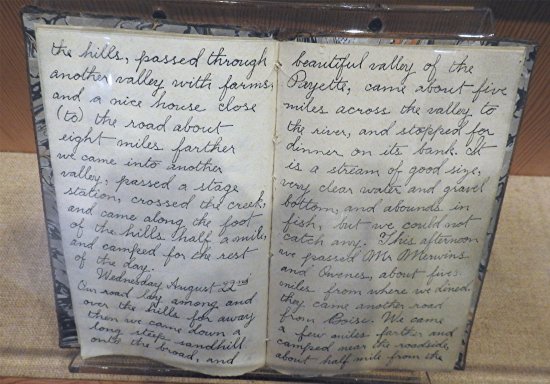 the hills, passed through
another valley with farms,
and a nice house close
(to) the road about
eight miles farther
we came into another
valley, passed a stage
station, crossed the creek,
and came along the foot
of the hills half a mile,
and camped for the rest
of the day.
Wednesday August 22nd
Our road lay among and
over the hills for away
then we came down a
long steep sandhill
onto the broad, and
beautiful valley of the
Payette, came about five
miles across the valley to
the river, and stopped for
dinner on its bank. It
is a stream of good size,
very clear water and gravel
bottom, and abounds in
fish, but we could not
catch any. This afternoon
we passed Mr Merwins
and Owenes, about five
miles from where we dined.
they came another road
from Boise. We came
a few miles farther and
camped near the roadside,
about half mile from the